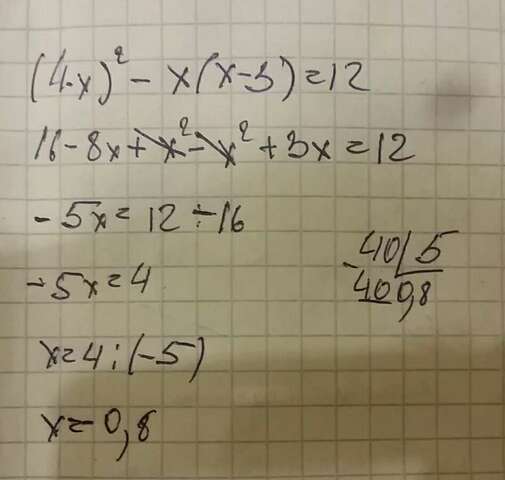 (4-x)² - x(x-3)=12
16-8x+x²-x²+3x=12
-5x=12-16
-5x=4
-40|5
40 0,8
x=4:(-5)
x=0,8